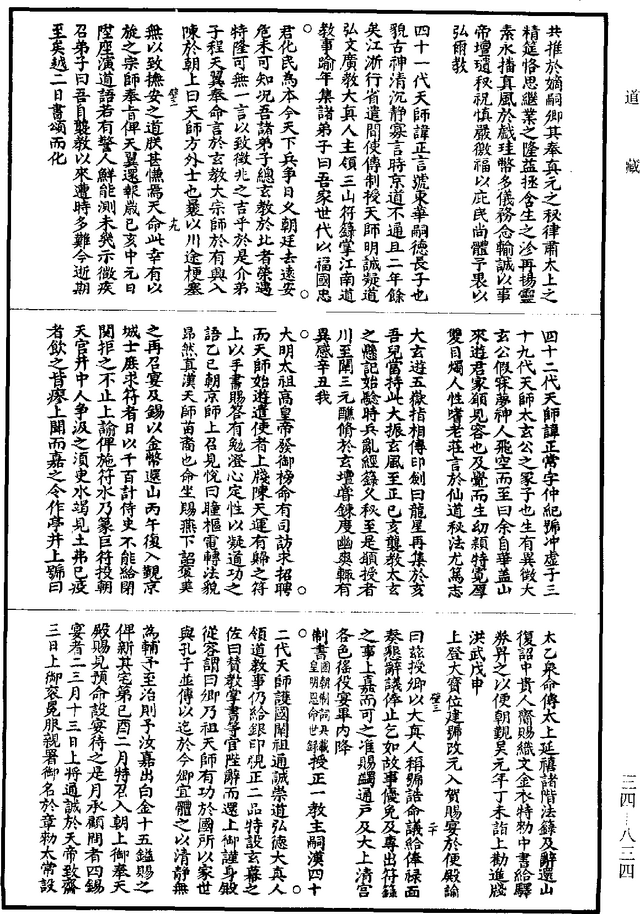 道藏
共推於嫡嗣卿其奉真元之秘律肅太上之
精筵恪思繼業之隆益拯含生之沴再揚靈
素永播真風於戲珪幣多儀務念輸誠以事
帝壇璲秋祝慎嚴徽福以庇民尚體予衷以
弘爾教
四十一代天師諱正言號東華嗣德長子也
貌古神清沉靜寡言時京道不通且二年餘
矣江浙行省遣間使傳制授天師明誠凝道
弘文廣教大真人主領三山符籙掌江南道
教事踰年集諸弟子曰吾家世代以福國忠
君化民為本今天下兵爭日乂朝廷去遠安
危未可知況吾諸弟子總玄教於北者榮遇
特隆可無一言以致徵兆之吉乎於是介弟
子程天翼奉命言於玄教大宗師於有興入
陳於朝上曰天師方外士也曩以川途梗塞
壁三 十九
無以致撫安之道朕甚憮焉天命此幸有以
旋之宗師奉旨俾天翼還報歲己亥中元日
陞座演道語若有警人鮮能測未幾示微疾
召弟子曰吾自襲教以來遭時多難今逝期
至矣越二日書頌而化
四十二代天師諱正常字仲紀號冲虛子三
十九代天師太玄公之冢子也生有異徵大
玄公假寐夢神人飛空而至曰余自華蓋山
來遊君家願見容也及覺而生幼穎特寬厚
雙目燭人性嗜老莊言於仙道秘法尤篤志
大玄遊五嶽指相傳印劍曰龍星再集於亥
吾兒當持此大振玄風至正己亥襲教太玄
之懸記始驗時兵亂經籙久秘至是願授者
川至闡三元醮脩於玄壇嘗鍊度幽爽輒有
異感辛丑我
大明太祖高皇帝發御榜命有司訪求招聘
而天師始遣使者上牋陳天運有歸之符
上以手書賜答有勉澄心定性以凝道功之
語乙巳朝京師上召見悅曰瞳樞電轉法貌
昂然真漢天師苗裔也命坐賜燕下詔褒美
之再召宴及錫以金幣還山丙午復入覲京
城士庶求符者日以千百計侍吏不能給閉
關拒之不止上諭俾施符水乃篆巨符投朝
天宮井中人爭汲之須臾水竭見土弗已疫
者飲之皆瘳上聞而嘉之令作亭井上號曰
太乙泉命傳太上延禧諸階法籙及辭還山
復詔中貴人齎賜織文金衣特勑中書給驛
券昇之以便朝覲吴元年丁未詣上勸進牋
洪武戊申
上登大寶位建號改元入賀賜宴於便殿諭
壁三 二十
曰茲授卿以大真人稱號誥命議給俸祿面
奏懇辭議俸止乞如故事優免及專出符籙
之事上嘉而可之准賜蠲通戶及大上清宮
各色徭役宴畢內降
制書國朝制詞具載皇明恩命世錄授正一教主嗣漢四十
二代天師護國闡祖通誠崇道弘德大真人
領道教事仍給銀印視正二品特設玄幕之
佐曰贊教掌書等官陛辭而還上御謹身殿
從容謂曰卿乃祖天師有功於國所以家世
與孔子並傳以迄於今卿宜體之以清靜無
為輔予至治則予汝嘉出白金十五鎰賜之
俾新其宅第己酉二月特召入朝上御奉天
殿賜見預命設宴待之是月承顧問者四錫
宴者二三月十三日上將通誠於天帝致齋
三日上御袞冕服親署御名於章勑太常設
三四—八三四